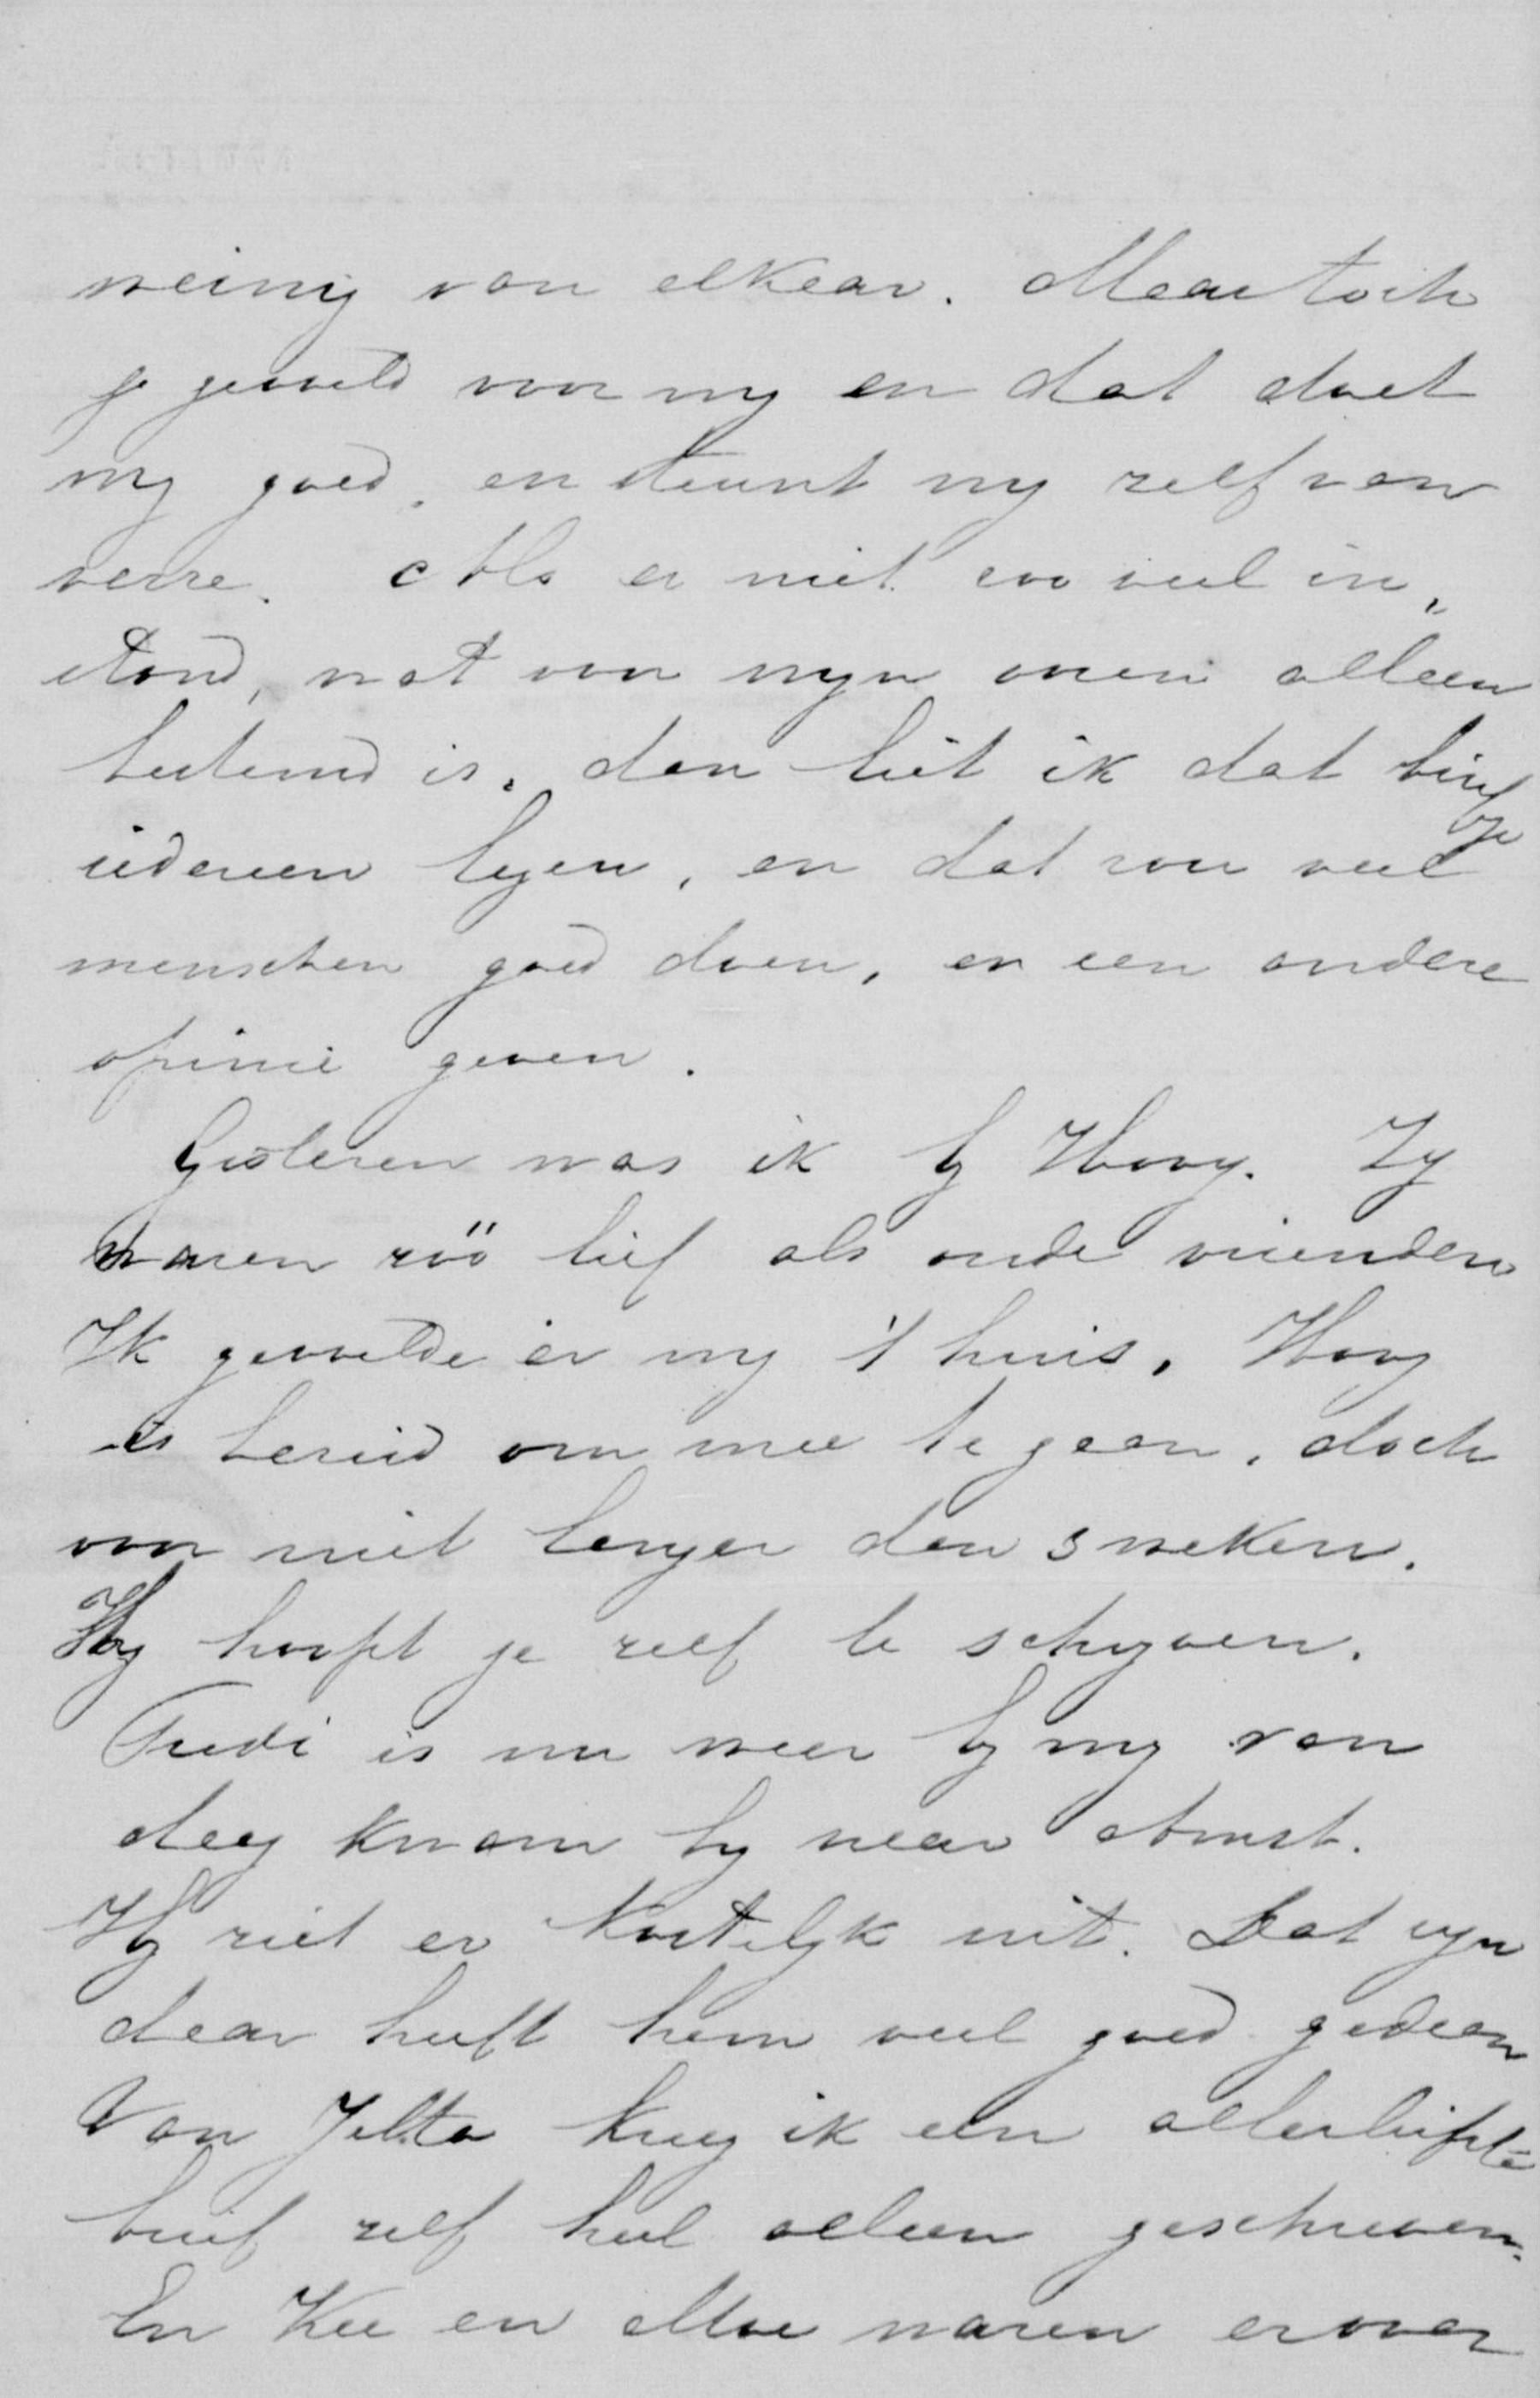 weinig van elkaar. Maar toch
je gevoeld voor my en dat doet
my goed, en steunt my zelf van
verre. Als er niet zoo veel in„
stond, wat voor myn oven alleen
bestemd is, dan liet ik dat briefje
iedereen lezen, en dat zou veel
menschen goed doen, en een andere
opinie geven.
Gisteren was ik by Hovy. Zy
waren zóó lief als oude vrienden
Ik gevoelde er my 't huis. Hovy
is bereid om mee te gaan, doch
voor niet langer dan 3 weken.
Hy hoopt je zelf te schryven.
Fredi is nu weer by my van
dag kwam hy naar Amst.
Hy ziet er kostelyk uit. Dat zyn
daar heeft hem veel goed gedaan
Van Jelta kreeg ik een allerliefste
brief zelf heel alleen geschreven.
En Kee en Moe waren erover